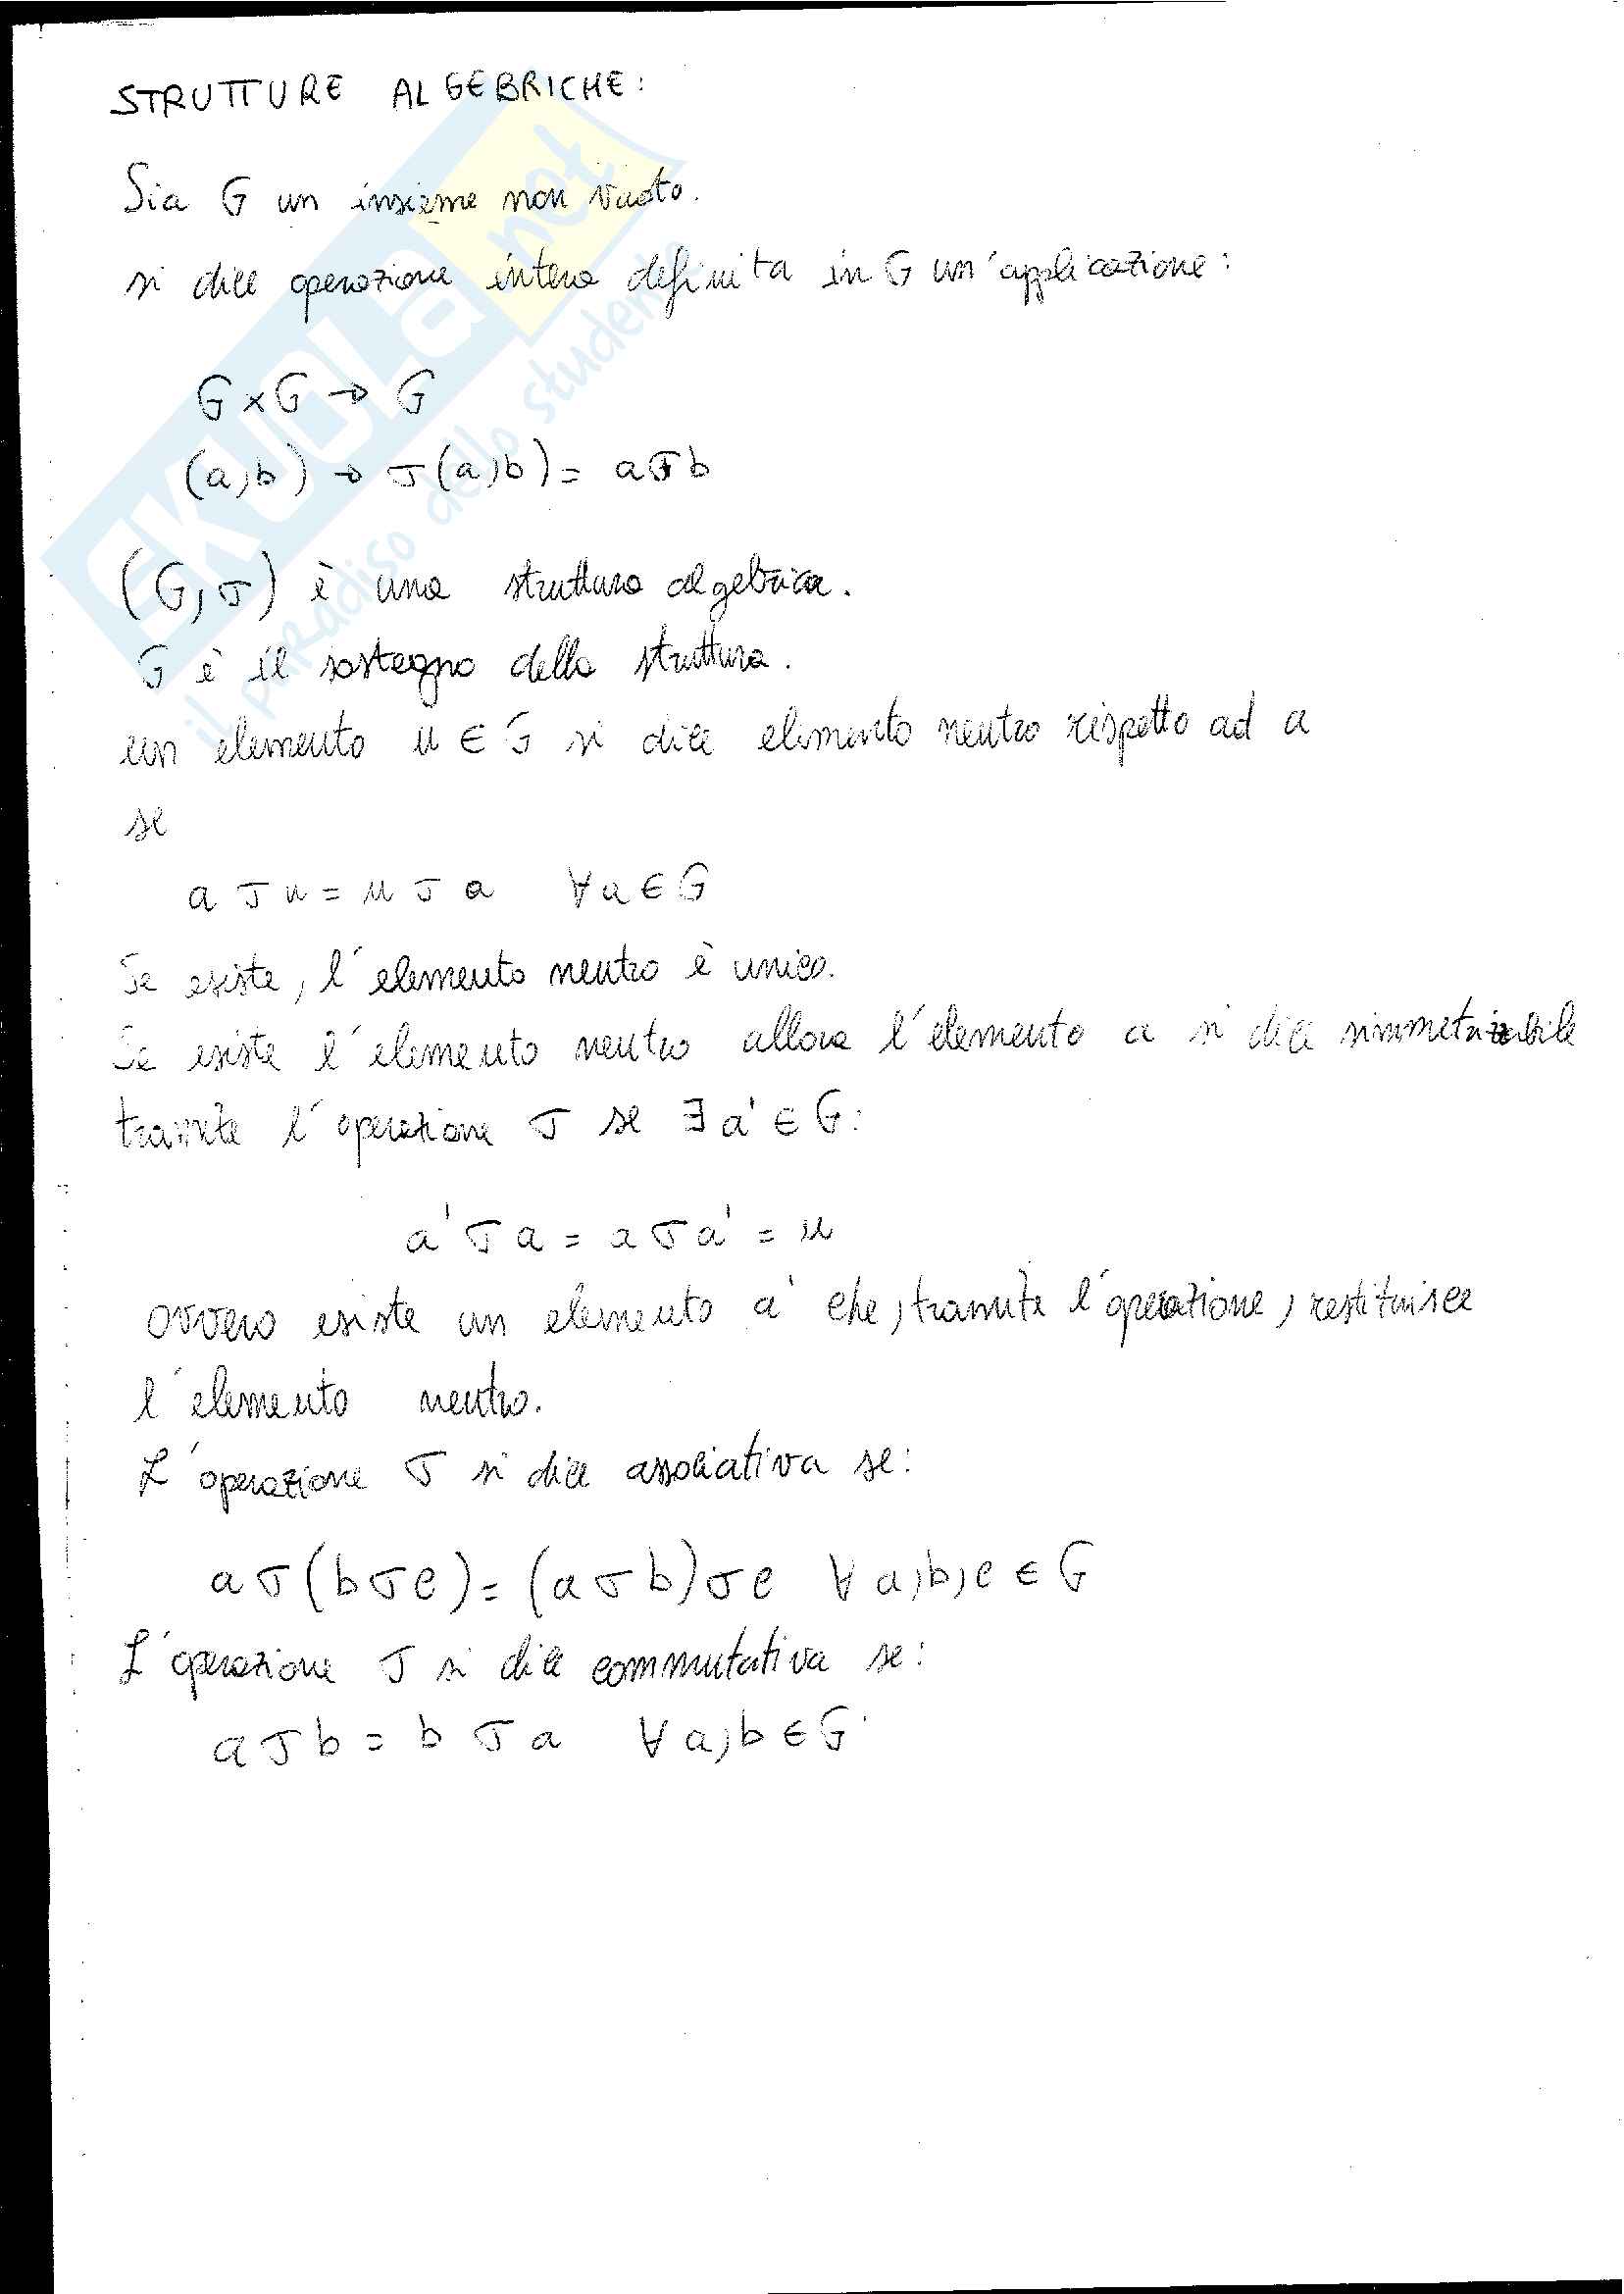 STRUTTURE ALGEBRICHE:
Sia G un insieme non vuoto.
si dice operazione interna definita in G un'applicazione:
G×G → G
(a,b) → σ(a,b) = aσb
(G,σ) è una struttura algebrica.
G è il sostegno della struttura.
un elemento u ∈ G si dice elemento neutro rispetto ad a
se
a σ u = u σ a ∀a ∈ G
Se esiste, l'elemento neutro è unico.
Se esiste l'elemento neutro allora l'elemento a si dice simmetrizzabile
tramite l'operazione σ se ∃ a' ∈ G:
a' σ a = a σ a' = u
ovvero esiste un elemento a' che, tramite l'operazione, restituisce
l'elemento neutro.
L'operazione σ si dice associativa se:
a σ (b σ c) = (a σ b) σ c ∀ a,b,c ∈ G
L'operazione σ si dice commutativa se:
a σ b = b σ a ∀ a,b ∈ G
SKUOLA.net
il paradiso dello studente